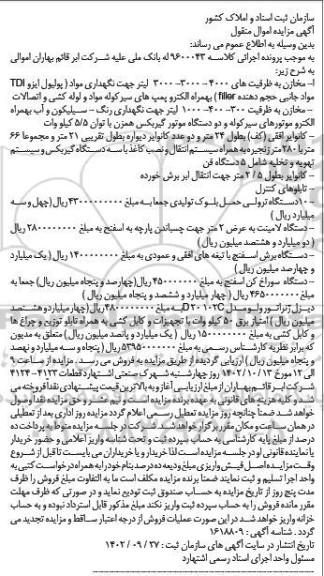 سازمان ثبت اسناد و املاک کشور
آگهی مزایده اموال منقول
بدین وسیله به اطلاع عموم می رساند:
به موجب پرونده اجرائی کلاسه ۹۶۰۰۰۴۳ له بانک ملی علیه شرکت ابر قائم بهاران اموالی
به شرح زیر:
۱- مخازن به ظرفیت های ۴۰۰۰ – ۳۰۰۰- ۳۰۰۰ لیتر جهت نگهداری مواد ( پولیول ایزو TDI
مواد جانبی حجم دهنده filler ) بهمراه الکترو پمپ های سیرکوله مواد و لوله کشی و اتصالات
- مخازن به ظرفیت ۳۰۰-۴۰۰-۱۰۰۰ لیتر جهت نگهداری رنگ – سیلیکون و آب بهمراه
الکترو موتورهای سیرکوله و دو دستگاه موتور گیربکس همزن با توان ۵/۵ کیلو وات
- کانوایر افقی (کف) بطول ۲۴ متر و دو عدد کانوایر دیواره بطول تقریبی ۲۱ متر و مجموعا ۶۶
متر یا ۲۸۰ متر زنجیره به همراه سیستم انتقال و نصب کاغذ با سه دستگاه گیربکس و سیستم
تهویه و تخلیه شامل ۵ دستگاه فن
- کانوایر بطول ۲/۵ متر جهت انتقال برش خورده
- تابلوهای کنترل
- ۱۰ دستگاه ترولی حمل بلوک تولیدی جمعا به مبلغ ۴۳۰۰۰۰۰۰۰۰۰ ریال (چهل و سه
میلیارد ریال )
- دستگاه لامینت به عرض ۲ متر جهت چسباندن پارچه به اسفنج به مبلغ ۲۸۰۰۰۰۰۰۰۰ ریال
( دو میلیارد و هشتصد میلیون ریال )
- دستگاه برش اسفنج با تیغه های افقی و عمودی به مبلغ ۱۴۰۰۰۰۰۰۰۰ ریال ( یک میلیارد
و چهارصد میلیون ریال )
- دستگاه سوراخ کن اسفنج به مبلغ ۴۵۰۰۰۰۰۰۰ ریال(چهارصد و پنجاه میلیون ریال) جمعا به
مبلغ ۴۶۵۰۰۰۰۰۰۰ ریال ( چهار میلیارد و ششصد و پنجاه میلیون ریال )
دیزل ژنراتور ولوو مدل به مبلغ ۴۸۰۰۰۰۰۰۰۰ ریال(چهار میلیارد و هشتصد
میلیون ریال ) امتیاز برق ۵۰ کیلو وات با تجهیزات و کابل کشی به همراه تابلو توزیع و چراغ ها
و کابل کشی به مبلغ ۱۵۰۰۰۰۰۰۰۰ ریال ( یک میلیارد و پانصد میلیون ریال) متعلق به مدیون
که برابر نظریه کارشناس رسمی به مبلغ ریال ( پنجاه و سه میلیارد و نهصد
و پنجاه میلیون ریال ) ارزیابی گردیده از طریق مزایده به فروش می رسد . مزایده از ساعت ۹
الی ۱۲ مورخ ۱۴۰۲/۱۰/۱۳ روز چهارشنبه شهرک صنعتی اشتهارد قطعات ۴۱۲۳-۴۱۲۴
شرکت ابر قائم بهاران از مبلغ ارزیابی آغاز و به بالاترین قیمت پیشنهادی نقدا فروخته می
شد و کلیه هزینه های قانونی به عهده برنده مزایده است و نیم عشر و حق مزایده نقدا وصول
خواهد شد ضمنا چنانچه روز مزایده تعطیل رسمی اعلام گردد مزایده روز اداری بعد از تعطیلی
در همان ساعت و مکان مقرر برگزار خواهد شد شرکت در جلسه مزایده منوط به پرداخت ده
درصد از مبلغ پایه کارشناسی به حساب سپرده ثبت و تحت شناسه واریز اعلامی و حضور خریدار
یا نماینده قانونی او در جلسه مزایده است لذا خریدار و یا خریداران می بایست تا قبل از شروع
وقت مزایده اصل فیش واریزی مبلغ ودیعه ده درصد بنام خود را به همراه درخواست کتبی به
واحد اجرا تسلیم و ثبت نمایند ضمنا برنده مزایده مکلف است ما به التفاوت مبلغ فروش را ظرف
مدت پنج روز از تاریخ مزایده به حساب صندوق ثبت تودیع نماید و در صورتی که ظرف مهلت
مقرر مانده فروش را به حساب سپرده ثبت واریز نکند مبلغ مذکور قابل استرداد نبوده و به حساب
خزانه واریز خواهد شد در این صورت عملیات فروش از درجه اعتبار ساقط و مزایده تجدید می
گردد . شناسه آگهی : ۱۶۱۸۸۰۹
تاریخ انتشار در سایت آگهی های سازمان ثبت : ۲۷ / ۰۹ / ۱۴۰۲
مسئول واحد اجرای اسناد رسمی اشتهارد